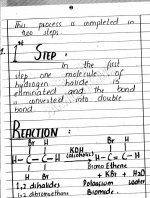 This process is completed in
two steps.
1st STEP:
In the first
step one molecule of
hydrogen halide is
eliminated and the bond
is converted into double
bond
REACTION:
Br H Br H
H-C-C-H KOH (alcoholic) H-C=C-H
H Br Bromo Ethene
+ KBr + H2O
1,2 dihalides Potassium water
1,2 dibromoethane Bromide.